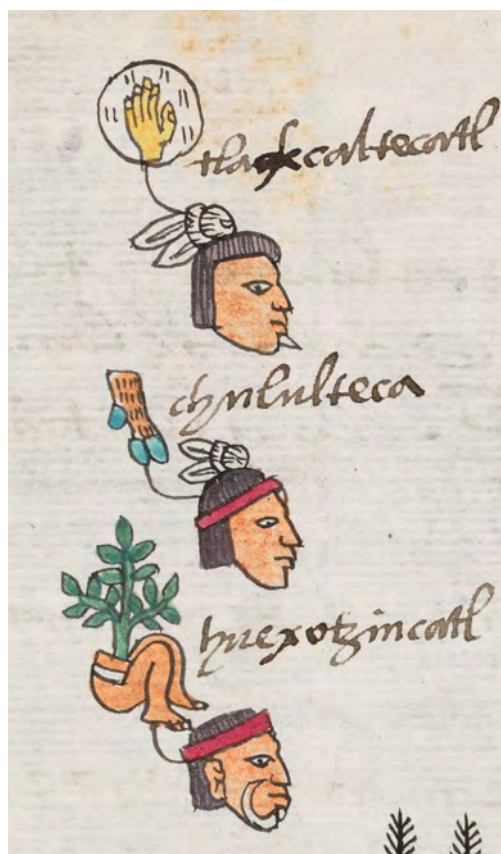 tlaxcaltecatl
chululteca
huexotzincatl